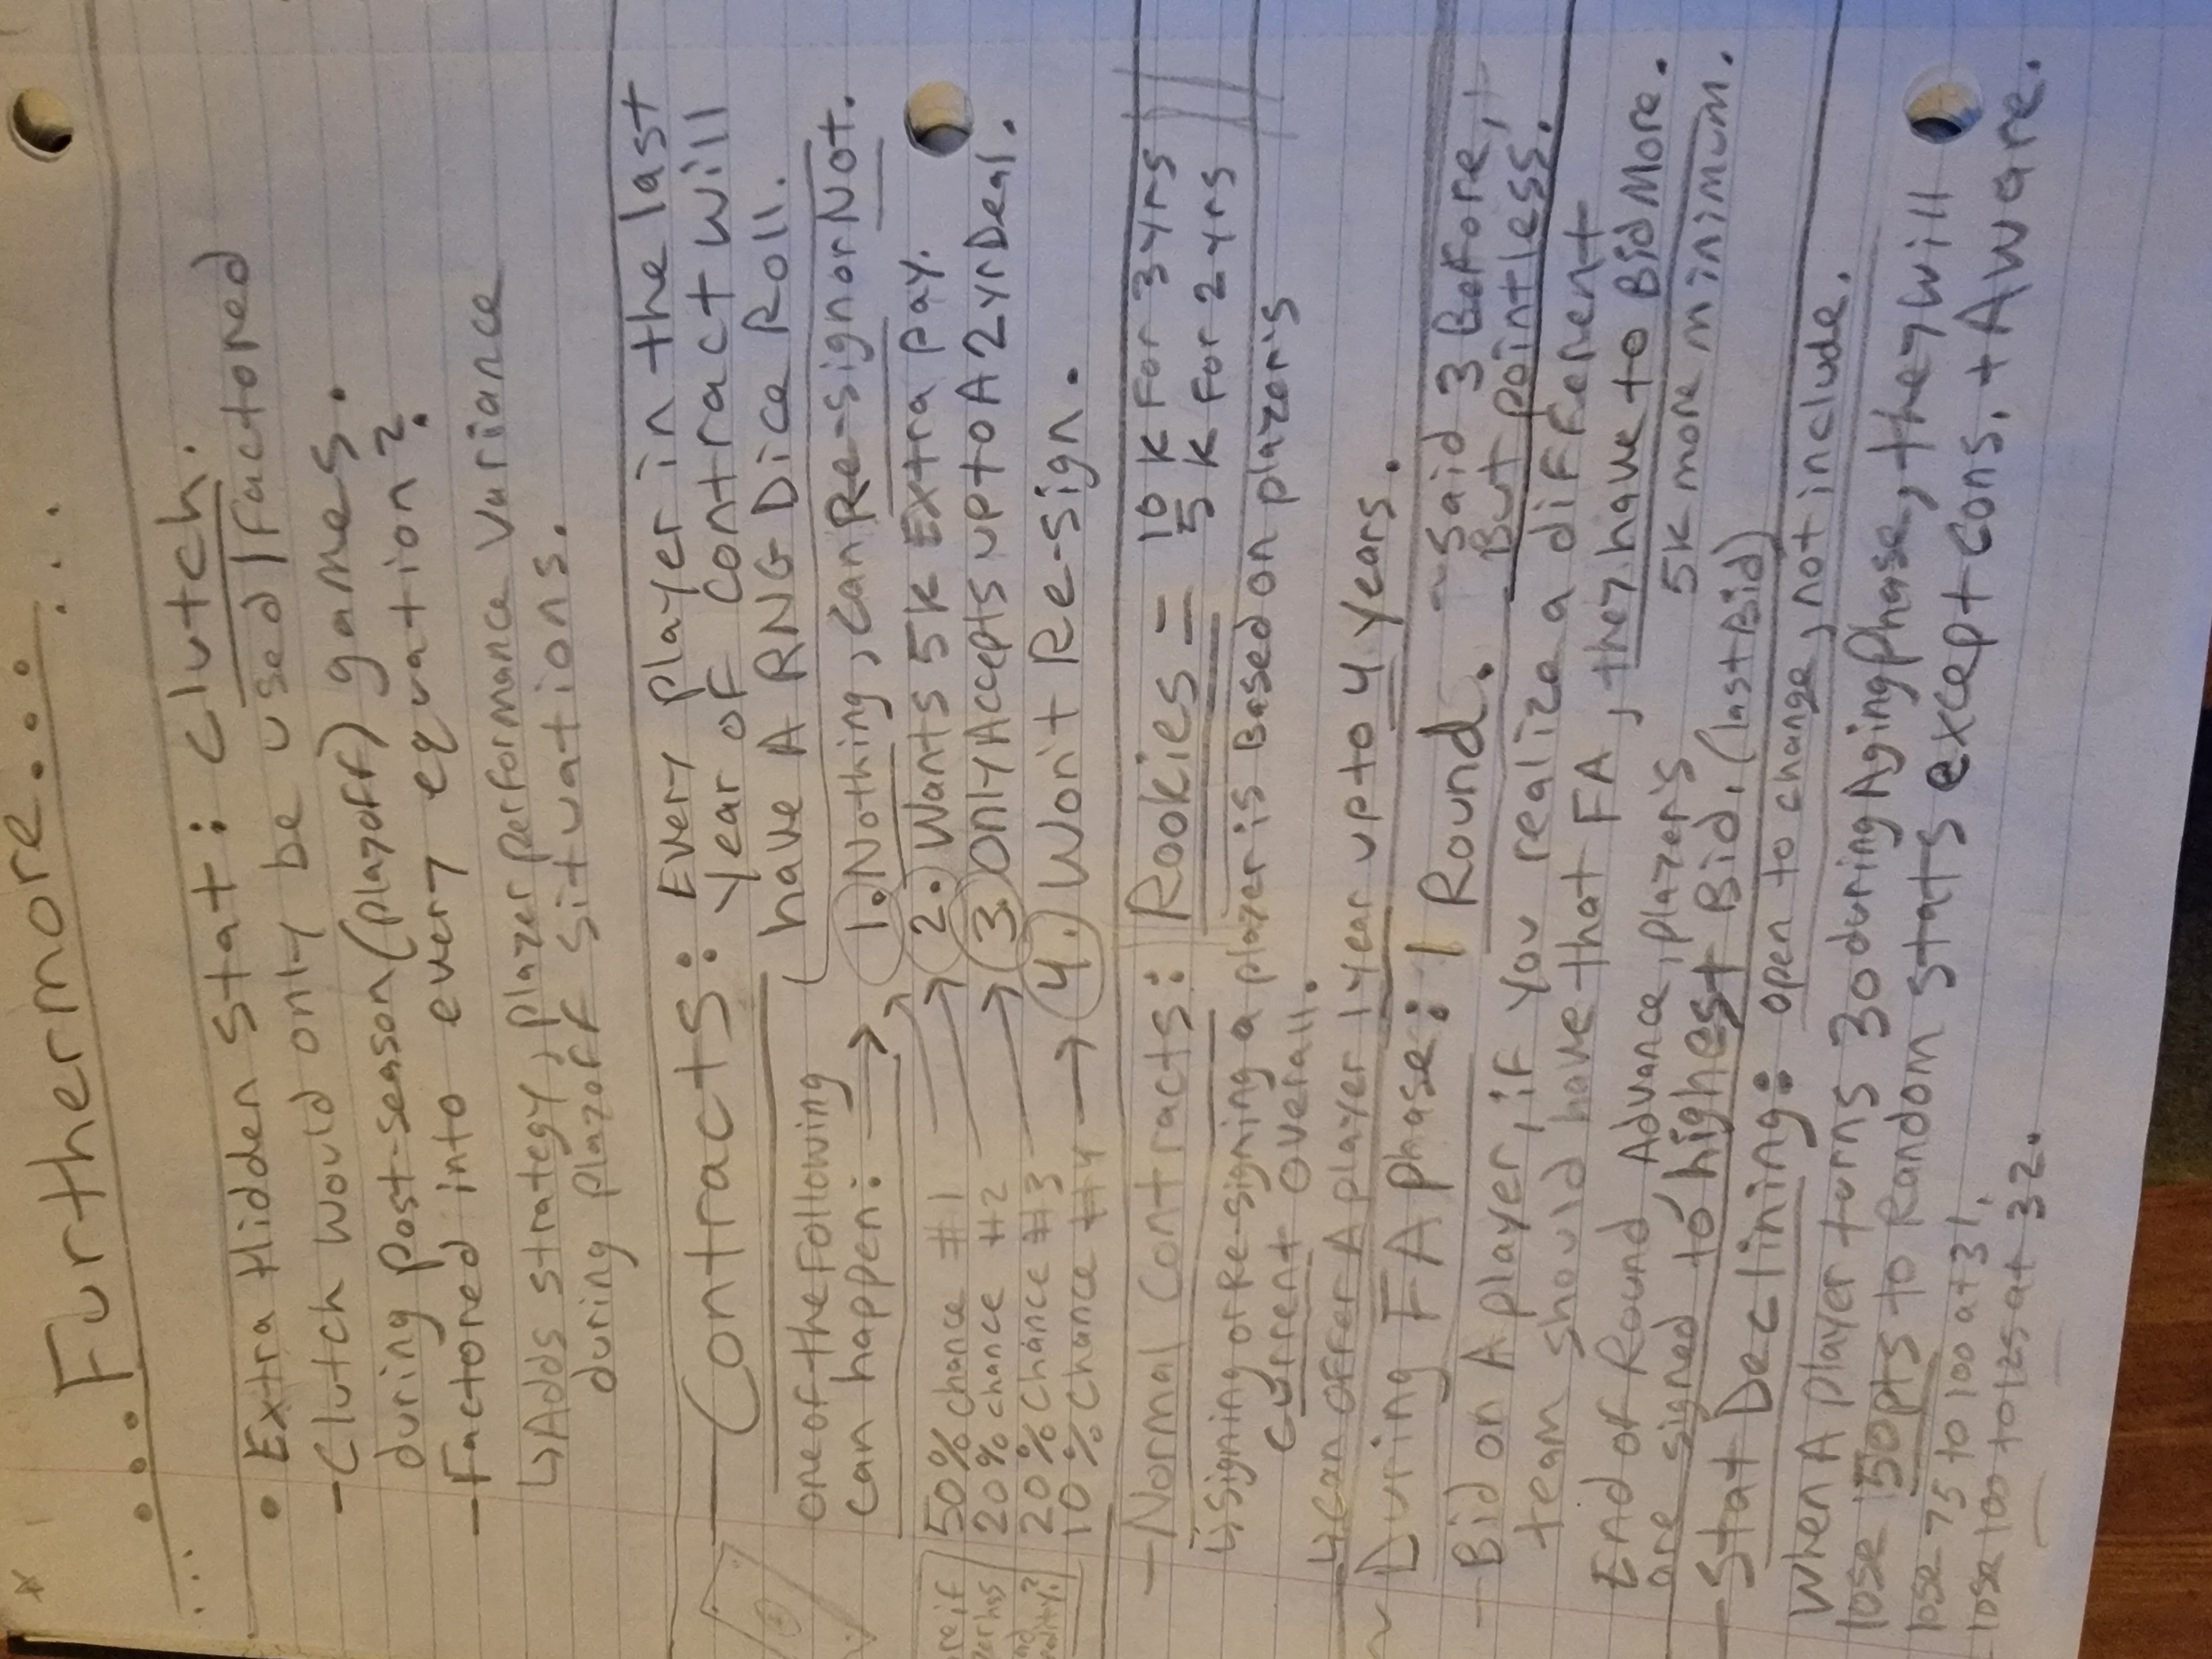 ...Furthermore...
...
...
• Extra Hidden Stat: Clutch.
-Clutch would only be used/factored
during post-season (playoff) games.
-Factored into every equation?
↳Adds strategy, player performance variance
during playoff situations.
-Contracts: Every player in the last
year of contract will
have A RNG Dice Roll.
one of the following
can happen: →
1. Nothing, can Re-sign or Not.
2. Wants 5k Extra pay.
3. Only Accepts up to A 2yr Deal.
4. Won't Re-sign.
50% chance #1
20% chance #2
20% chance #3
10% chance #4
-Normal Contracts: Rookies = 10 K for 3 yrs
5 K for 2 yrs
↳signing or Re-signing a player is Based on player's
current overall.
↳can offer A player 1 year up to 4 years.
~During FA phase: 1 Round. ~Said 3 Before,
But pointless.
-Bid on A player, if you realize a different
team should have that FA, they have to Bid More.
5k more minimum.
End of Round, Advance, player's
are signed to highest Bid. (last Bid)
-Stat Declining: open to change, not include.
When A player turns 30 during Aging Phase, they will
lose 50pts to Random stats except cons. + Aware.
lose 75 to 100 at 31.
lose 100 to 125 at 32.